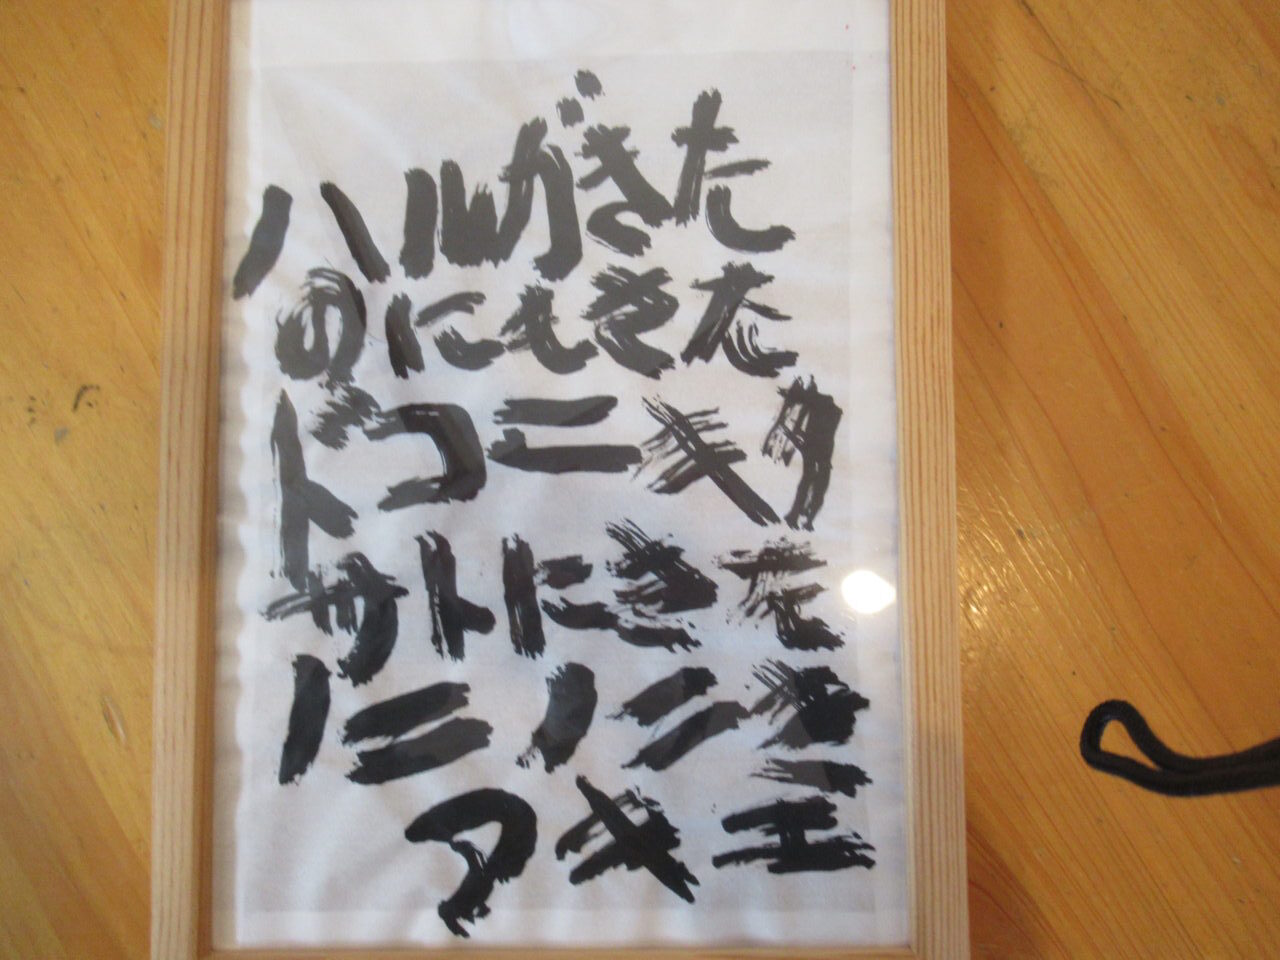 ハルがきた
のにもきた
ドコニキタ
サトにきた
ノニノニき
アキエ